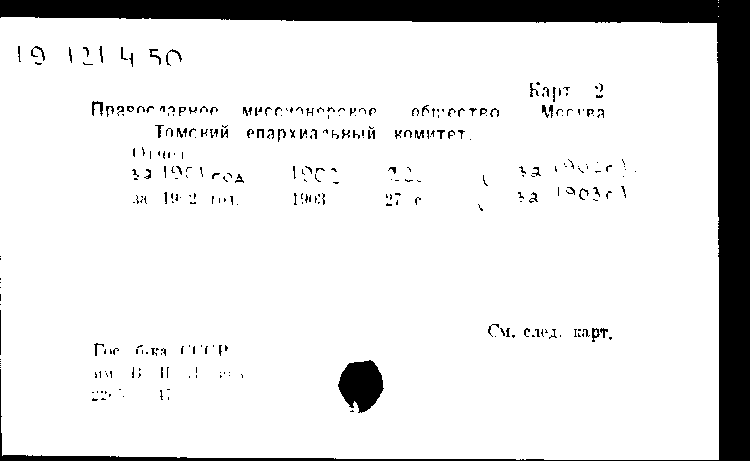 19 121 4 50
Карт 2
Православное миссионерское общество Москва
Томский епархиальный комитет.
Отчет
за 1901 год 1902 22 ( за 1902г).
за 1902 год. 1903 27 с ( за 1903г)
См. след. карт.
Гос б-ка СССР
им В И
47